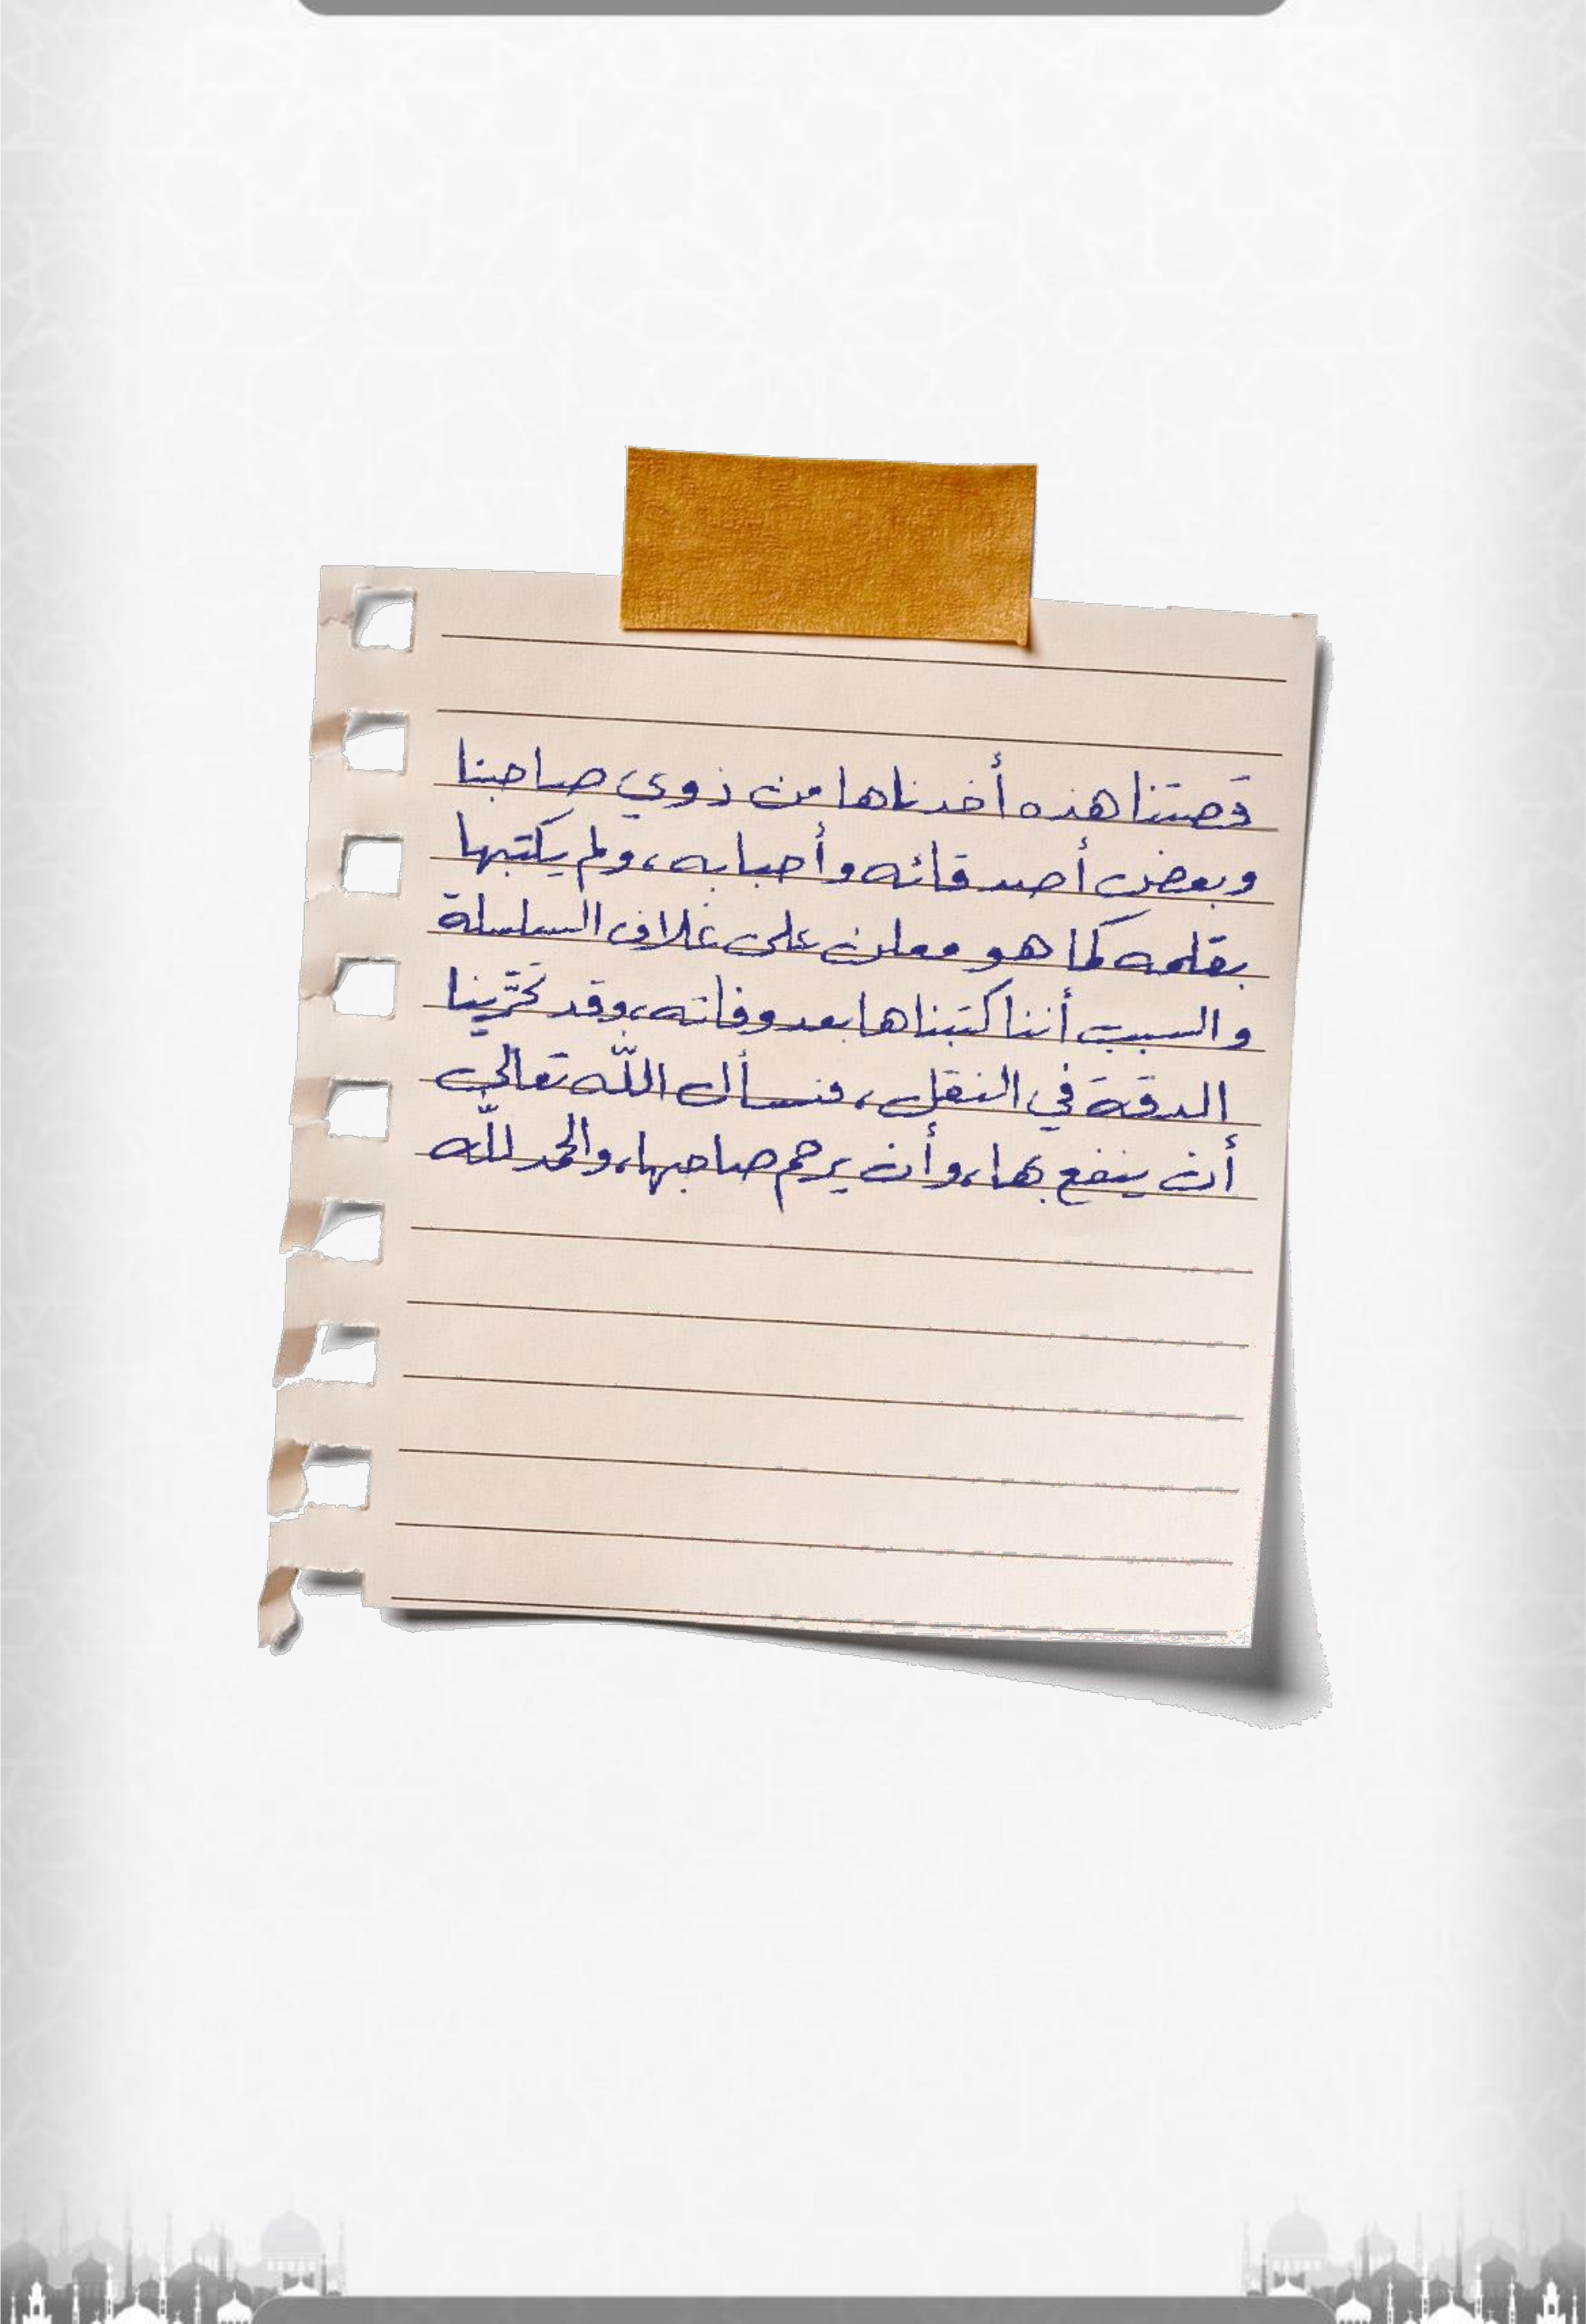 قصتنا هذه أخذناها من ذوي صاحبنا
وبعض أصدقائه وأحبابه، ولم يكتبها
بقلمه كما هو معلن على غلاف السلسلة
والسبب أننا كتبناها بعد وفاته، وقد تحرَّينا
الدقة في النقل، فنسأل اللّه تعالى
أن ينفع بها، وأن يرحم صاحبها، والحمد للّه